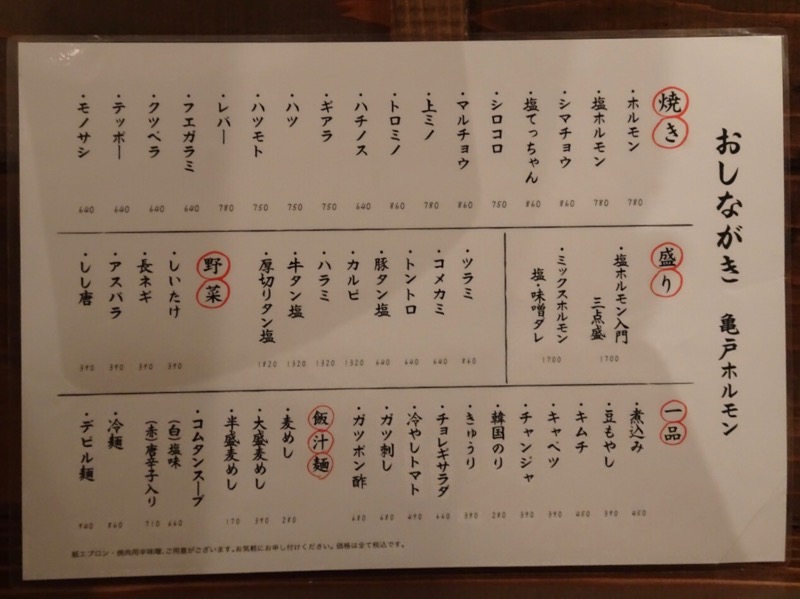 おしながき 亀戸ホルモン
焼き
・ホルモン 780
・塩ホルモン 780
・シマチョウ 860
・塩てっちゃん 860
・シロコロ 750
・マルチョウ 860
・上ミノ 780
・トロミノ 860
・ハチノス 640
・ギアラ 750
・ハツ 750
・ハツモト 750
・レバー 780
・フエガラミ 640
・クツベラ 640
・テッポー 640
・モノサシ 640
盛り
・塩ホルモン入門
三点盛 1700
・ミックスホルモン
塩・味噌ダレ 1700
・ツラミ 860
・コメカミ 640
・トントロ 640
・豚タン塩 640
・カルビ 1320
・ハラミ 1320
・牛タン塩 1320
・厚切りタン塩 1820
野菜
・しいたけ 390
・長ネギ 390
・アスパラ 390
・しし唐 390
一品
・煮込み 480
・豆もやし 390
・キムチ 480
・キャベツ 390
・チャンジャ 390
・韓国のり 280
・きゅうり 390
・チョレギサラダ 660
・冷やしトマト 490
・ガツ刺し 680
・ガツポン酢 680
飯汁麺
・麦めし 280
・大盛麦めし 390
・半盛麦めし 170
・コムタンスープ
(白)塩味 660
(赤)唐辛子入り 710
・冷麺 860
・デビル麺 940
紙エプロン・焼肉用辛味噌、ご用意がございます。お気軽にお申し付けください。価格は全て税込です。